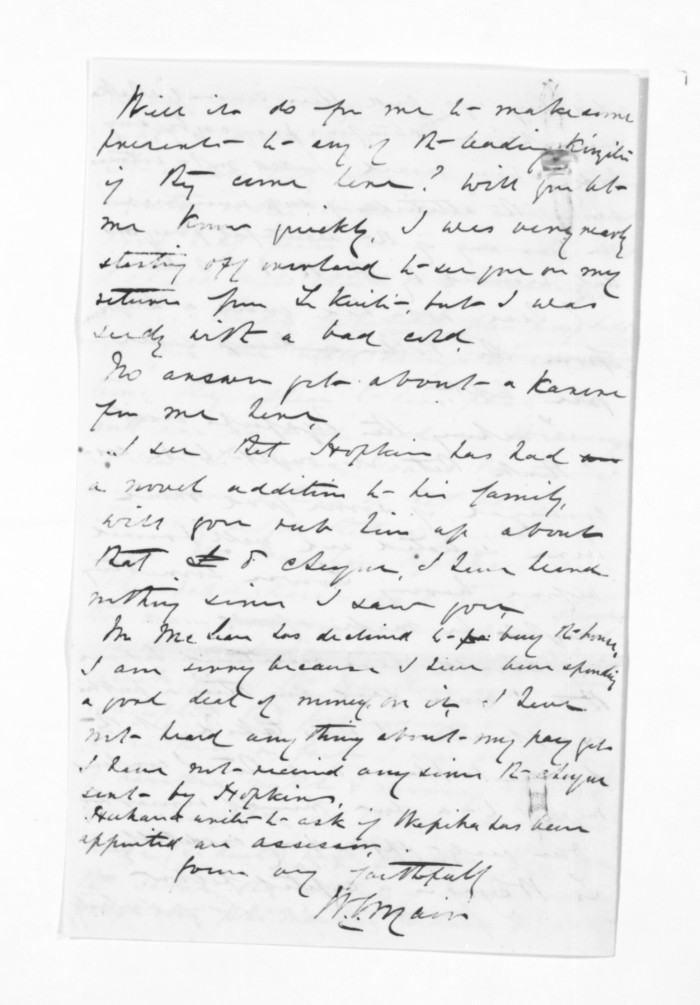 Will it do for me to make some
presents to any of the leading Kingites
if they come here? Will you let
me know quickly, I was very nearly
starting off overland to see you on my
return from Te Kuiti, but I was
seedy with a bad cold
No answer yet about a Karere
for me here,
I see that Hopkins has had
a novel addition to his family,
will you rub him up about
that £8 cheque, I have heard
nothing since I saw you,
Mr McLean has declined to buy the house,
I am sorry because I have been spending
a good deal of money on it, I have
not heard anything about my pay yet
I have not received any since the cheque
sent by Hopkins,
writes to ask if has been
appointed an assessor,
Yours very faithfully
W. G. Mair